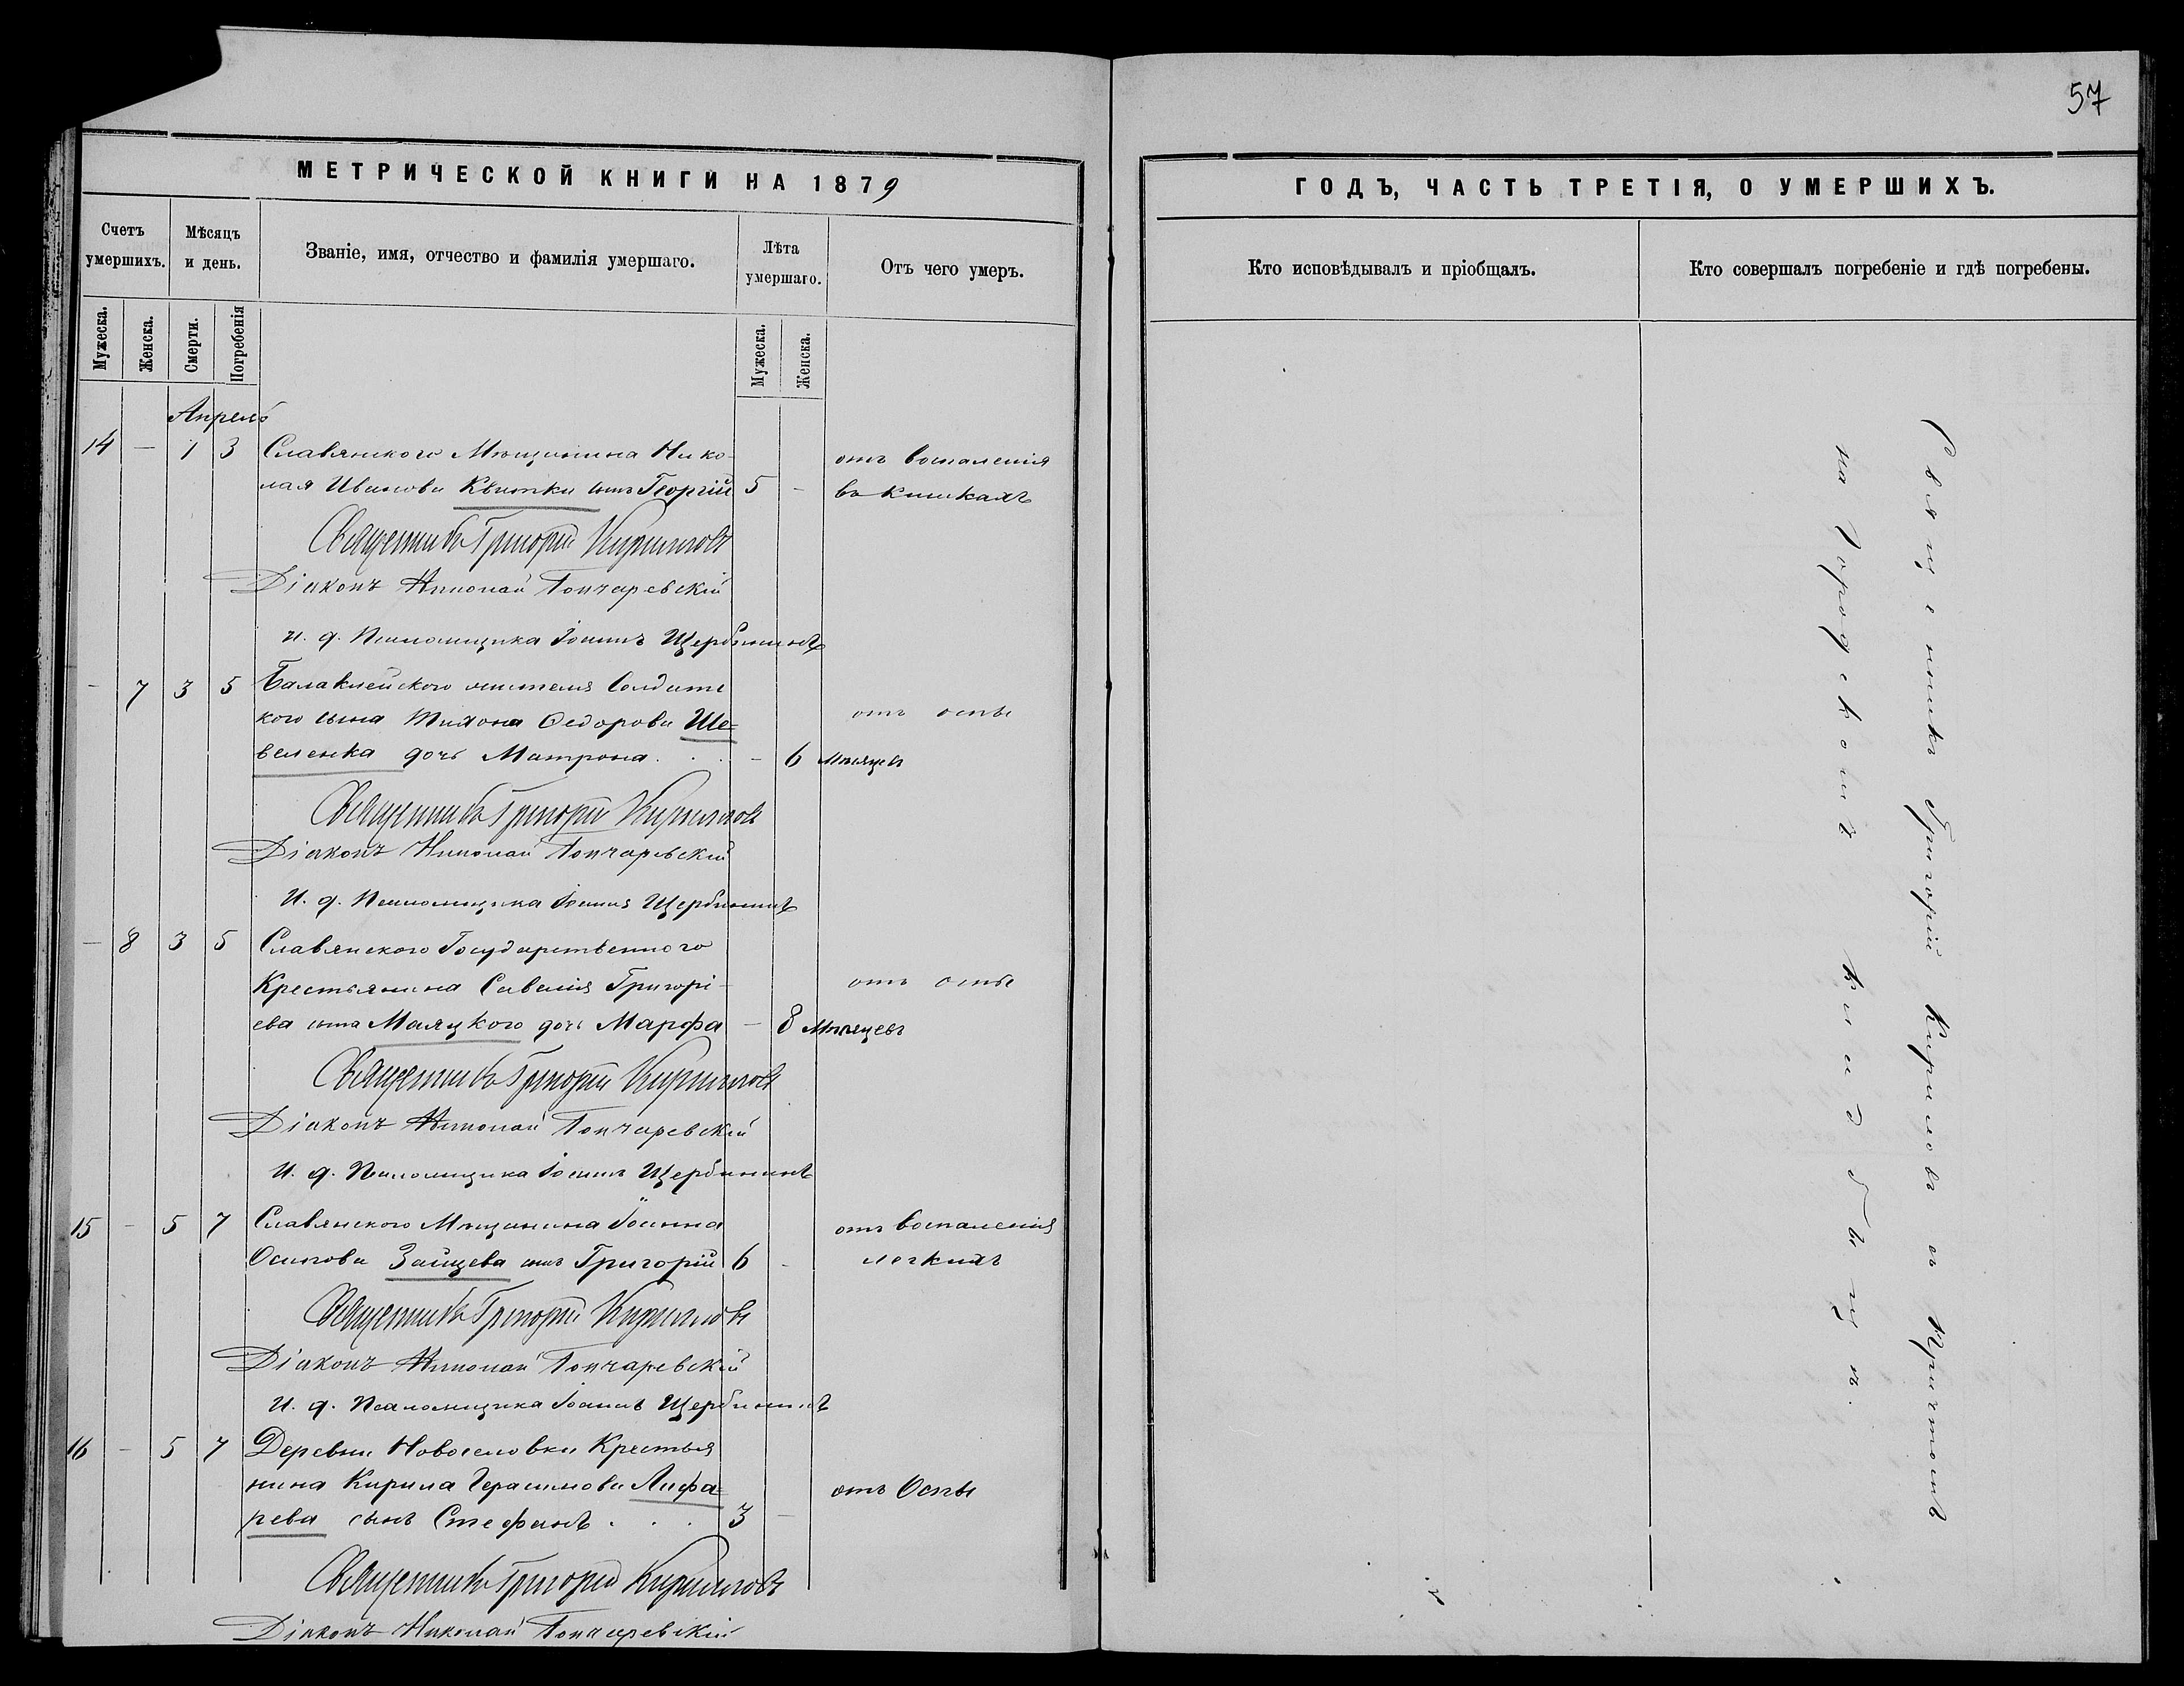 57
МЕТРИЧЕСКОЙ КНИГИ НА 1879
Счетъ умершихъ.
Мѣсяцъ и день.
Званіе, имя, отчество и фамилія умершаго.
Лѣта умершаго.
Отъ чего умеръ.
Мужеска.
Женска.
Смерти.
Погребенія
Мужеска.
Женска.
Апрель
14 — 1 3 Славянского Мѣщанина Нико-
лая Иванова Квитки сынъ Георгій 5 - отъ воспаленія
въ кишкахъ
Священникъ Григорій Кирилловъ
Діаконъ Николай Гончаревскій
и. д. Псаломщика Іоаннъ Щербининъ
- 7 3 5 Балаклейского жителя Солдатс
кого сына Тихона Федорова Ше=
веленка дочь Матрона . . . - 6 Мѣсяцев
отъ оспы
Священникъ Григорій Кирилловъ
Діаконъ Николай Гончаревскій
И. д. Псаломщика Іоаннъ Щербининъ
- 8 3 5 Славянского Государственного
Крестьянина Савелія Григорі-
ева сына Маяцкого дочь Марфа — 8 Мѣсяцевъ
отъ оспы
Священникъ Григорій Кирилловъ
Діаконъ Николай Гончаревскій
И. д. Псаломщика Іоаннъ Щербининъ
15 - 5 7 Славянского Мѣщанина Іоанна
Осипова Зайцева сынъ Григорій 6 - отъ воспаленія
легкихъ
Священникъ Григорій Кирилловъ
Діаконъ Николай Гончаревскій
И. д. Псаломщика Іоаннъ Щербининъ
16 - 5 7 Деревни Новоселовки Крестья
нина Кирила Герасимова Лифа=
рева сынъ Стефанъ . . . 3 — отъ Оспы
Священникъ Григорій Кирилловъ
Діаконъ Николай Гончаревскій
ГОДЪ, ЧАСТЬ ТРЕТІЯ, О УМЕРШИХЪ.
Кто исповѣдывалъ и пріобщалъ.
Кто совершалъ погребеніе и гдѣ погребены.
Священникъ Григорій Кириловъ съ Причтомъ
на Городскомъ кладбищѣ.